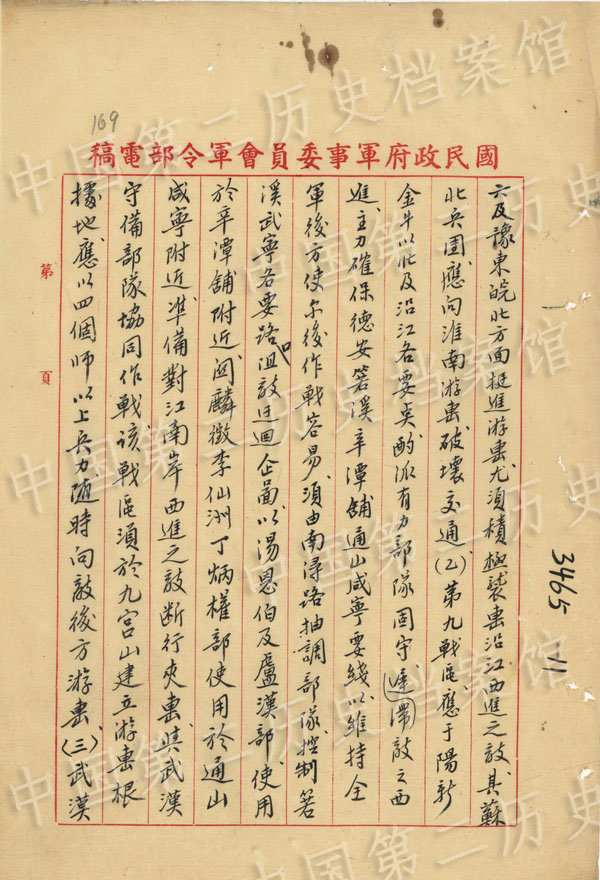 169
國民政府軍事委員會軍令部電稿
六及豫東皖北方面挺進游擊尤須積極襲擊沿江西進之敵其蘇
北兵團應向淮南游擊破壞交通(乙)第九戰區應于陽新
金牛以北及沿江各要點酌派有力部隊固守遲滯敵之西
進主力確保德安箬溪辛潭舖通山咸寧要綫以維持全
軍後方使尔後作戰容易須由南潯路抽調部隊控制箬
溪武寧各要路口阻敵迂迴企圖以湯恩伯及盧漢部使用
於辛潭舖附近關麟徵李仙洲丁炳權部使用於通山
咸寧附近准備對江南岸西進之敵斷行夾擊與武漢
守備部隊協同作戰該戰區須於九宮山建立游擊根
據地應以四個師以上兵力隨時向敵後方游擊(三)武漢
第 頁
3465 11
中国第二历史档案馆